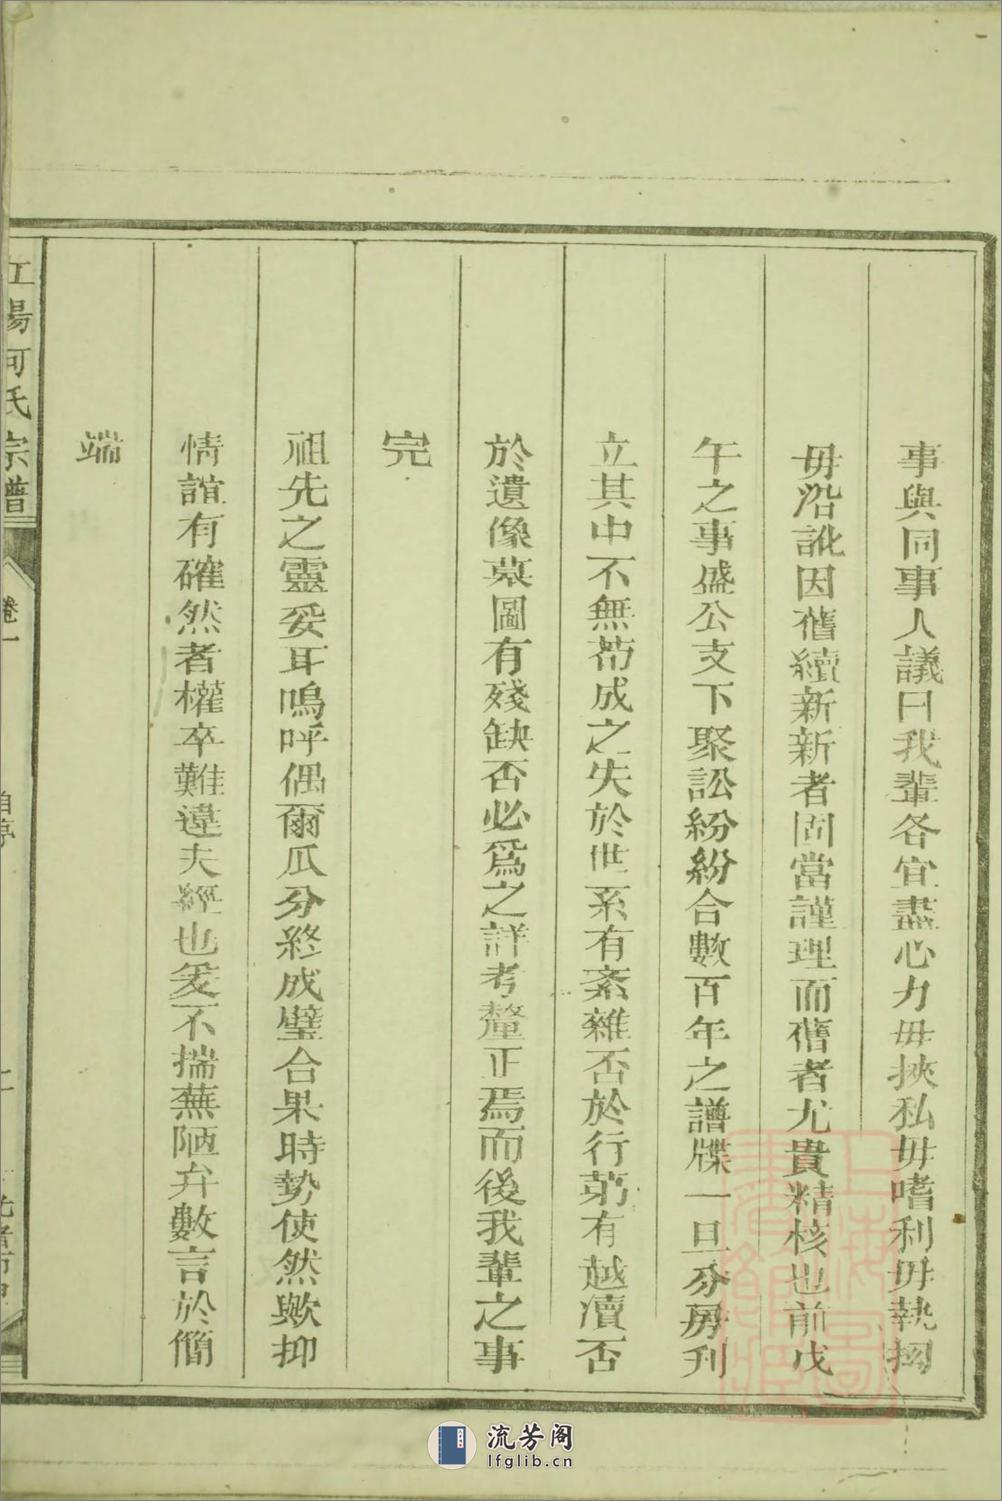 事與同事人議曰我輩各宜盡心力毋挾私毋嗜利毋執拗
毋沿訛因舊續新新者固當謹理而舊者尤貴精核也前戊
午之事盛公支下聚訟紛紛合數百年之譜牒一旦分房刋
立其中不無苟成之失於世系有紊雜否於行第有越瀆否
於遺像墓圖有殘缺否必爲之詳考釐正焉而後我輩之事
完
祖先之靈妥耳嗚呼偶爾瓜分終成璧合果時勢使然歟抑
情誼有確然者權卒難違夫經也爰不揣蕪陋弁數言於簡
端
江陽何氏宗譜
卷一
上海圖書館藏
流芳阁
lfglib.cn